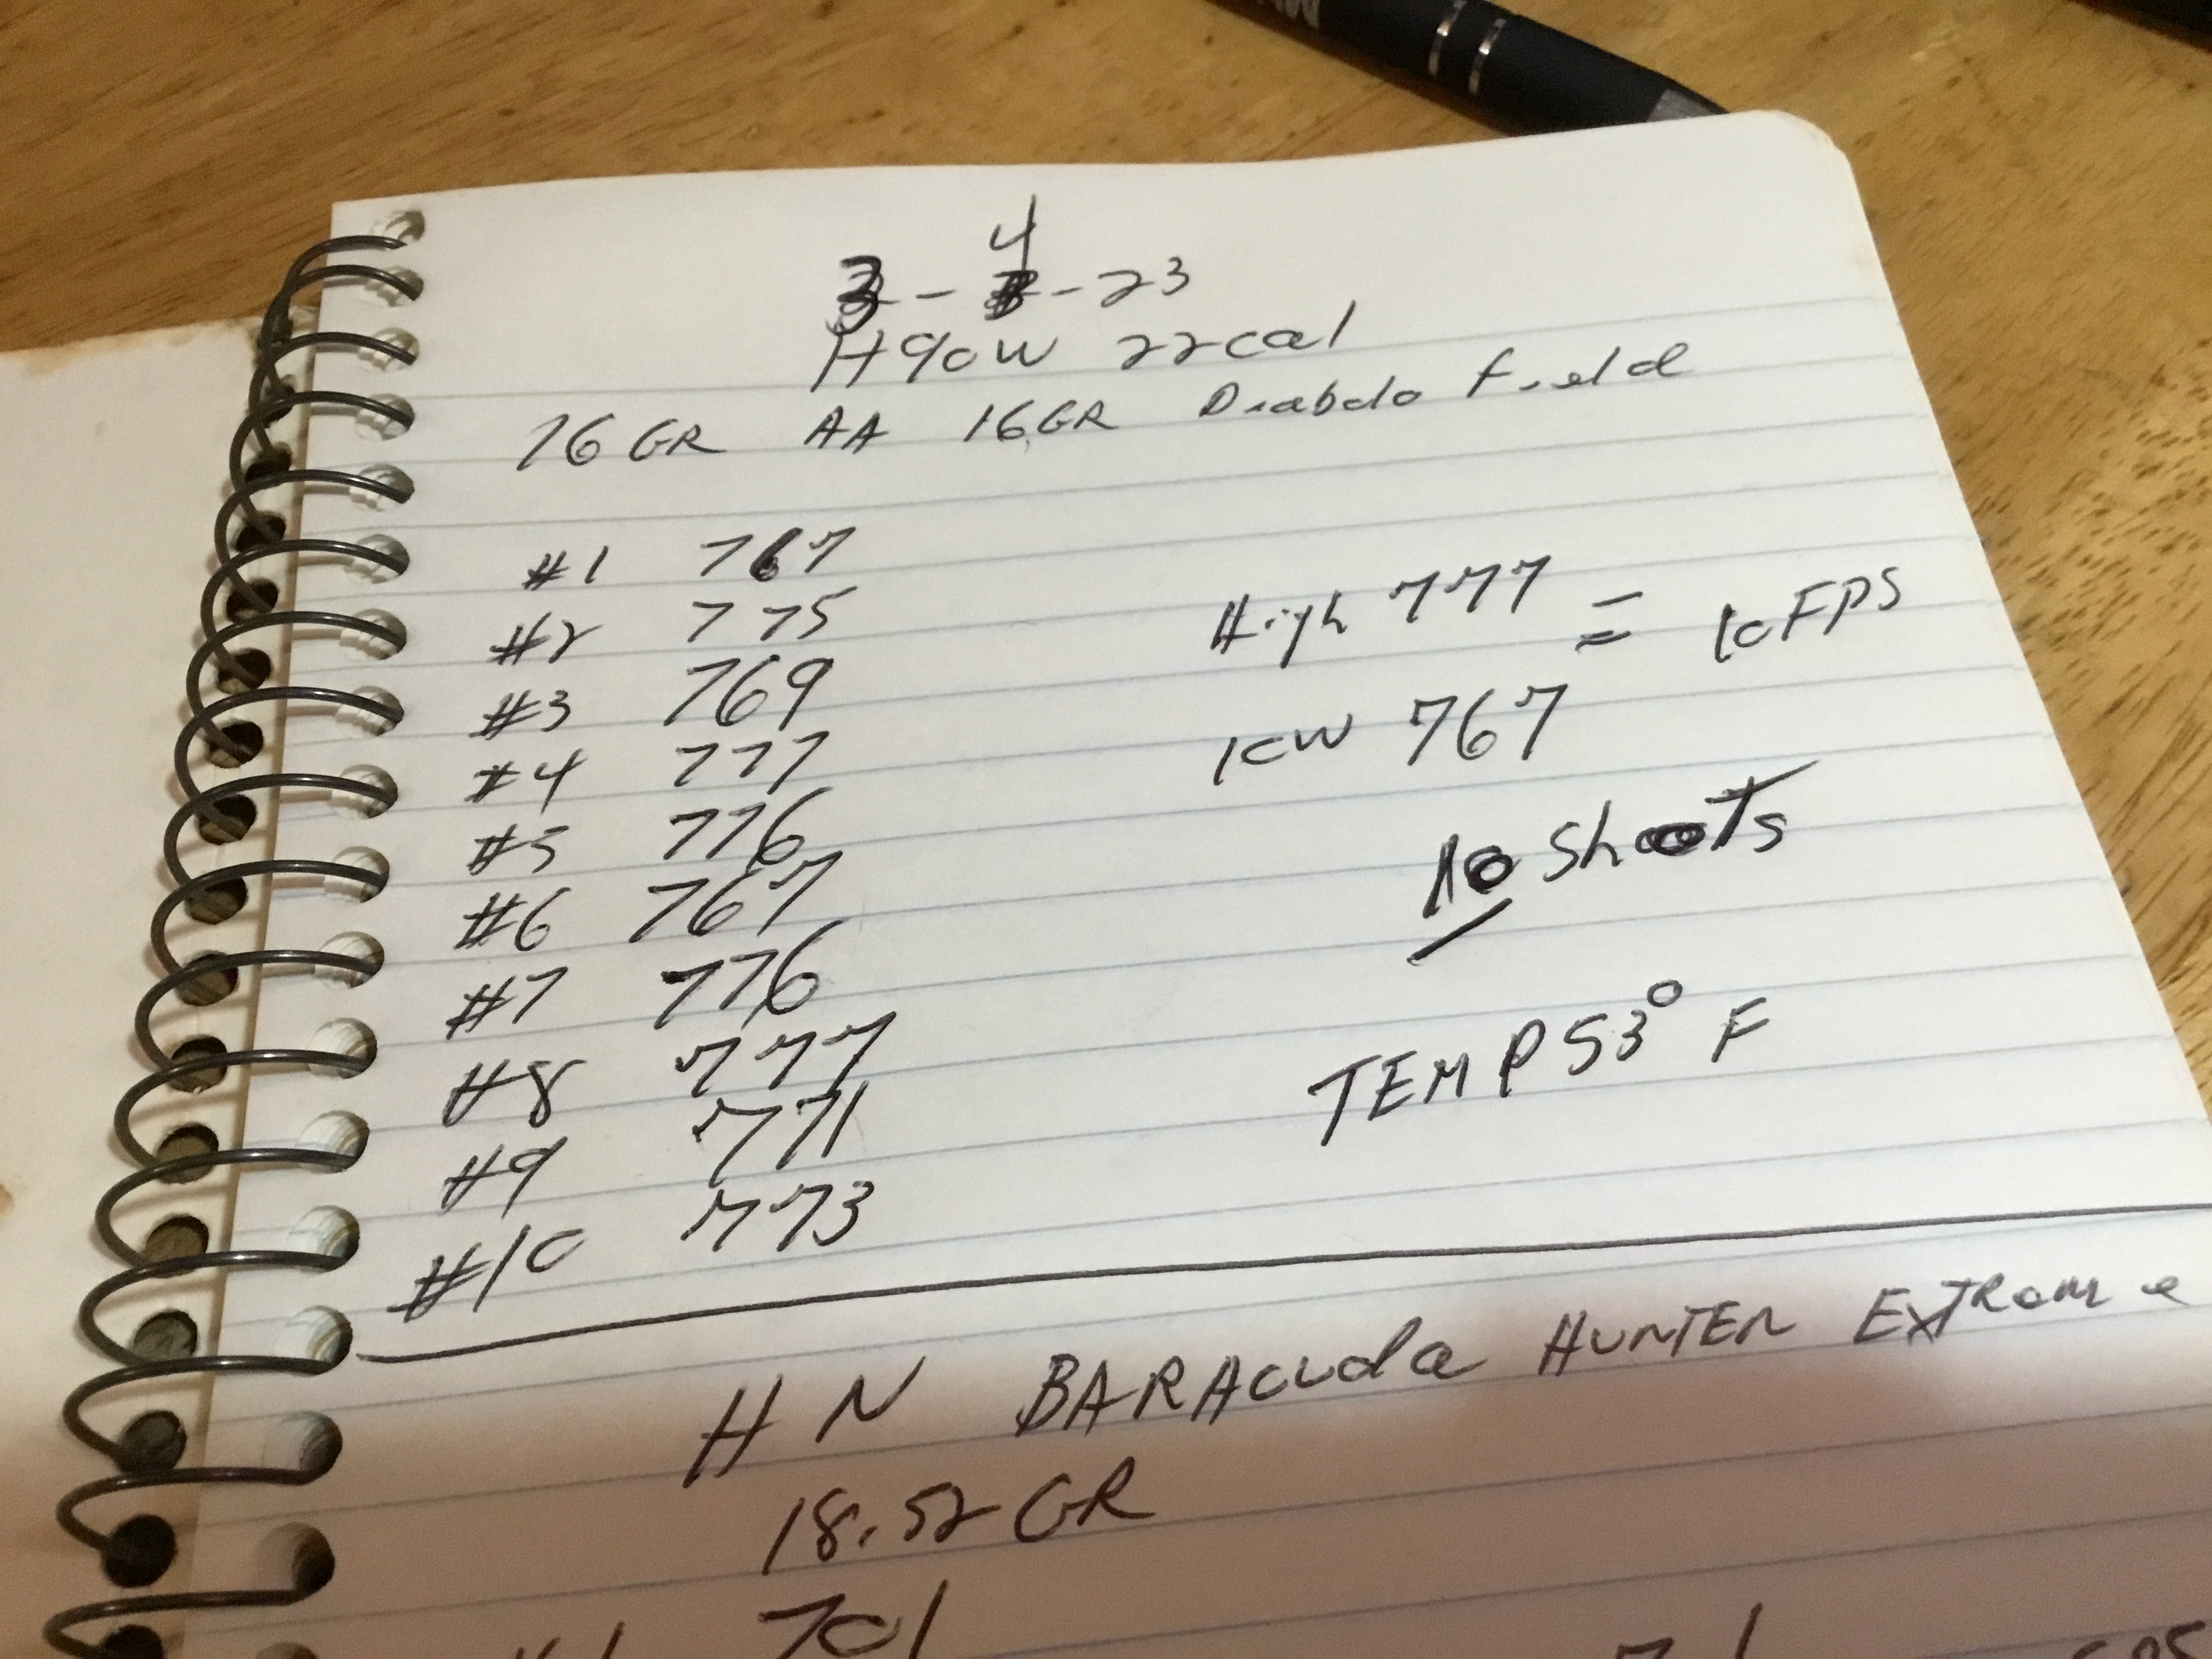 4
3 - - 23
H90W 22cal
16 GR AA 16GR Diabolo Field
#1 767
#2 775
#3 769
#4 777
#5 776
#6 767
#7 776
#8 777
#9 771
#10 773
High 777 = 10 FPS
low 767
10 Shots
TEMP 53° F
H N BARAcuda HUNTER ExTRem e
18.52 GR
701